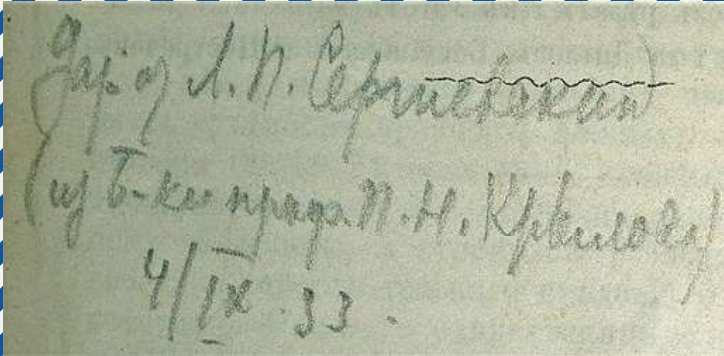 Дар от Л. П. Сергиевской
(из б-ки проф. П. Н. Крылова)
4/IX 33.